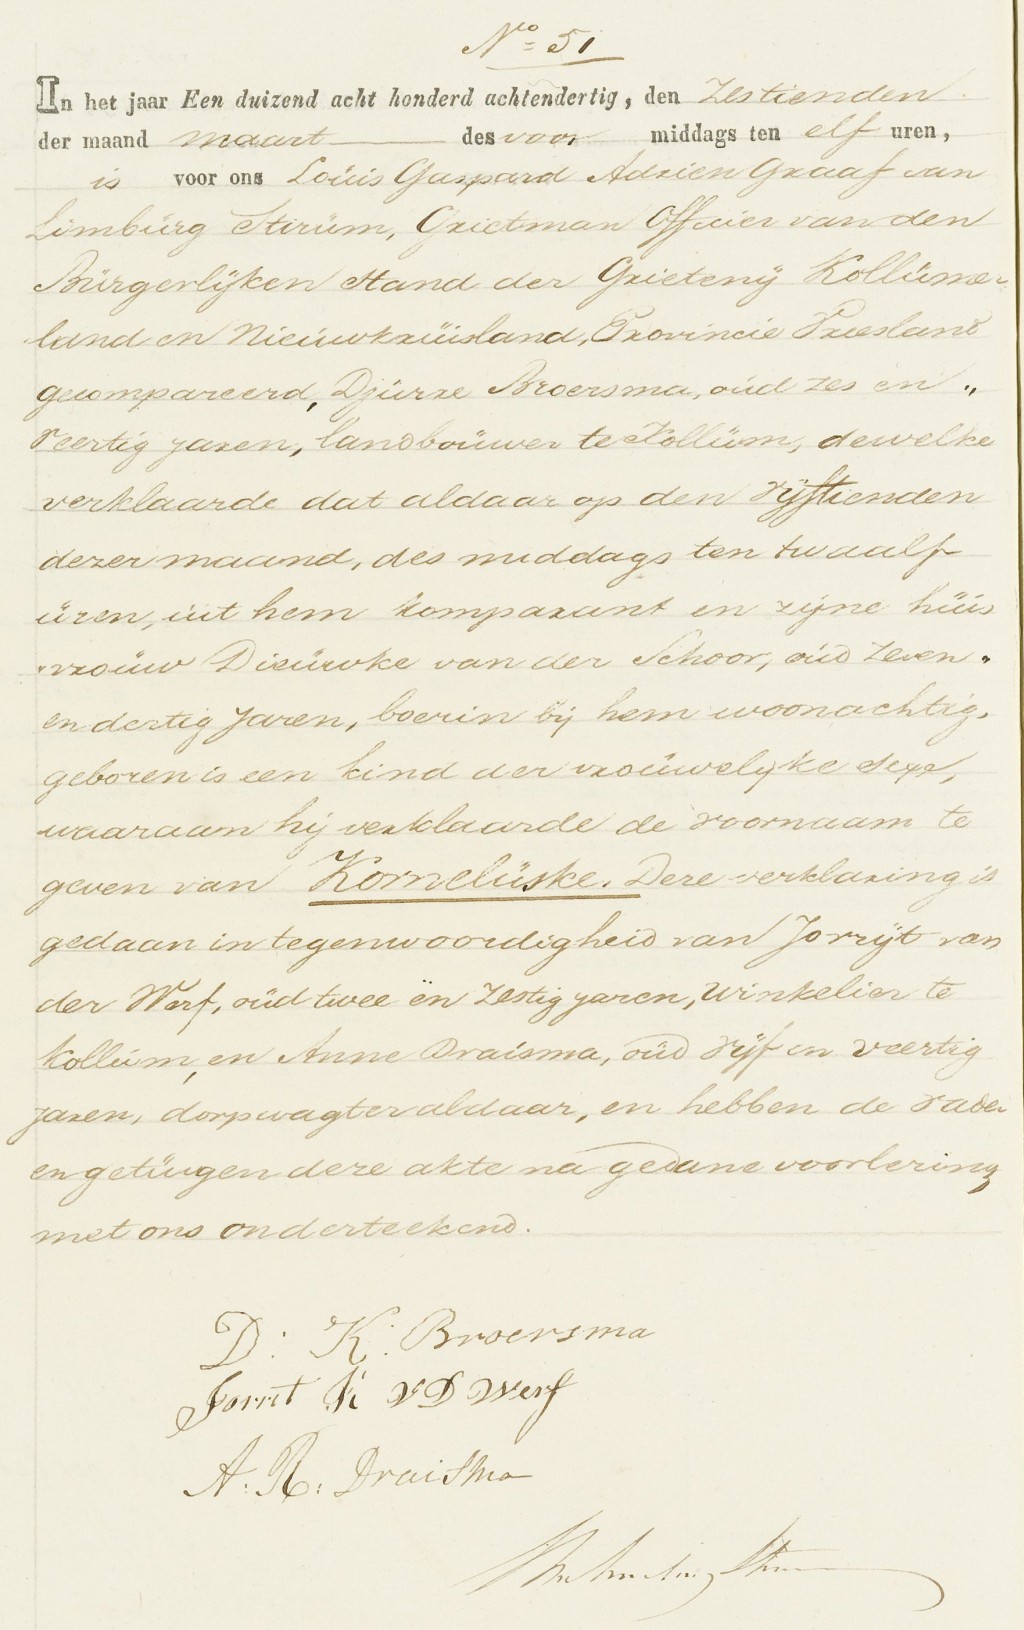 No 51
In het jaar Een duizend acht honderd achtendertig, den Zestienden
der maand maart des voor middags ten elf uren,
is voor ons Louis Gaspard Adrien Graaf van
Limburg Stirum, Grietman Officier van den
Burgerlijken Stand der Grieteny Kollumer-
land en Nieuwkruisland, Provincie Vriesland
gecompareerd, Djurre Broersma, oud zes en „
Veertig jaren, landbouwer te Kollum, dewelke
verklaarde dat aldaar op den vijftienden
dezer maand, des middags ten twaalf
uren, uit hem komparant en zijne huis
„vrouw Dieuwke van der Schoor, oud zeven „
en dertig jaren, boerin bij hem woonachtig,
geboren is een kind der vrouwelijke Sexe,
waaraan hij verklaarde de voornaam te
geven van Korneluske. Deze verklaring is
gedaan in tegenwoordigheid van Jorrijt van
der Werf, oud twee en zestig jaren, winkelier te
Kollum, en Anne Draisma, oud vijf en veertig
jaren, dorpwagter aldaar, en hebben de vader
en getuigen deze akte na gedane voorlezing
met ons onderteekend.
D: K: Broersma
Jorrit K V D Werf
A: R: Draisma